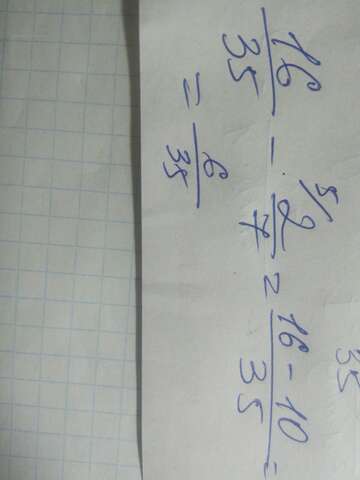 16/35 - 5/ 2/7 = 16-10/35 =
= 6/35
35